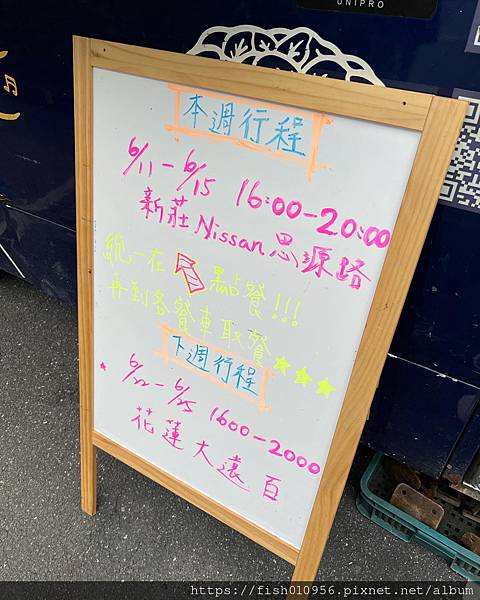 UNIPRO
本週行程
6/11-6/15 16:00-20:00
新莊Nissan思源路
統一在 點餐!!!
再到各餐車取餐★★★
下週行程
6/22-6/25 1600-2000
花蓮大遠百
https://fish010956.pixnet.net/album